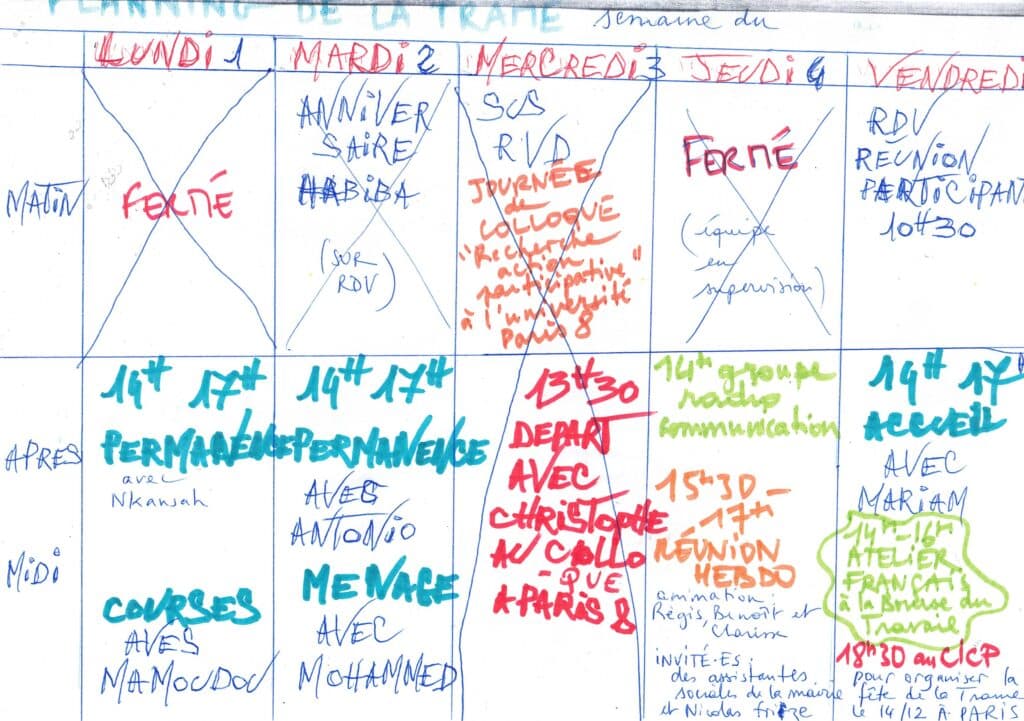 PLANNING DE LA TRAME semaine du
LUNDI 1
MARDI 2
MERCREDI 3
JEUDI 4
VENDREDI
MATIN
FERMÉ
ANNIVER
SAIRE
HABIBA
(SUR
RDV)
SUS
RVD
JOURNÉE
de
COLLOQUE
"Recherche
action
participative"
à l'université
Paris 8
FERMÉ
(équipe
en
supervision)
RDV
RÉUNION
PARTICIPAN
10H30
APRES
MIDI
14H 17H
PERMANENCE
avec
Nkansah
COURSES
AVES
MAMOUDOU
14H 17H
PERMANENCE
AVES
ANTONIO
MENAGE
AVEC
MOHAMMED
13H30
DEPART
AVEC
CHRISTOPHE
AU COLLO
-QUE
A PARIS 8
14H groupe
radio
communication
15H30-
17H
RÉUNION
HEBDO
animation:
Régis, Benoît et
Clarisse
INVITÉ·ES:
des assistantes
sociales de la mairie
et Nicolas frize
14H 17
ACCUEIL
AVEC
MARIAM
14H-16H
ATELIER
FRANÇAIS
à la Bourse du
Travail
18H30 au CICP
pour organiser la
fête de la Trame
le 14/12 À PARIS